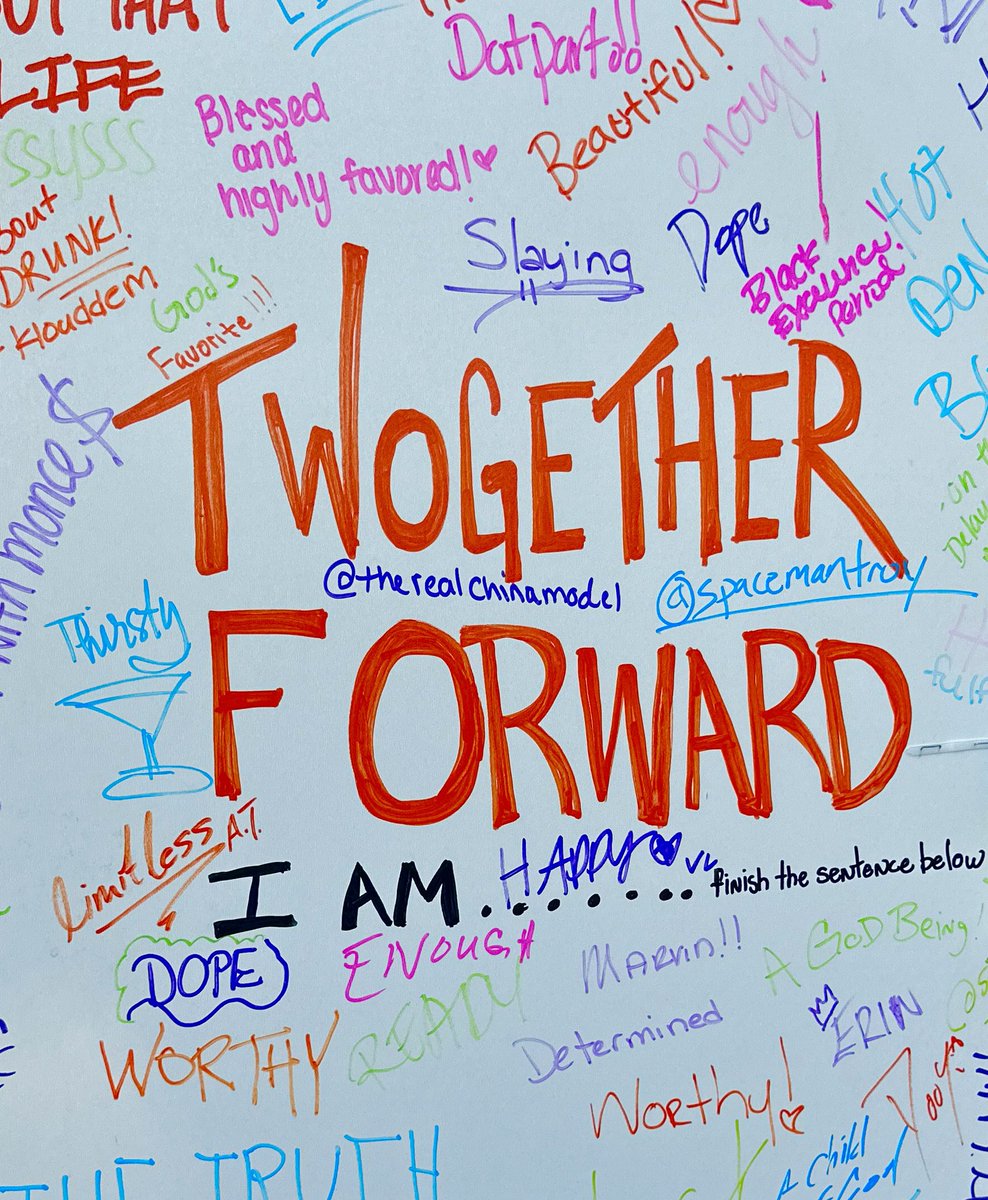 THAT
LIFE
Datpart!!
Beautiful!
enough!
Blessed
and
highly favored!
Slaying
Dope
Black
Excellence!
Period
HOT
DRUNK!
Klouddem
God's
Favorite!!!
TWOGETHER
@therealchinamodel
@spacemantroy
FORWARD
Thirsty
limitless A.T.
I AM.......
HAppy
finish the sentence below
DOPE
ENOUGH
MARVIN!!
A GOD Being!
READY
Determined
ERIN
WORTHY
Worthy!
THE TRUTH
A Child
God